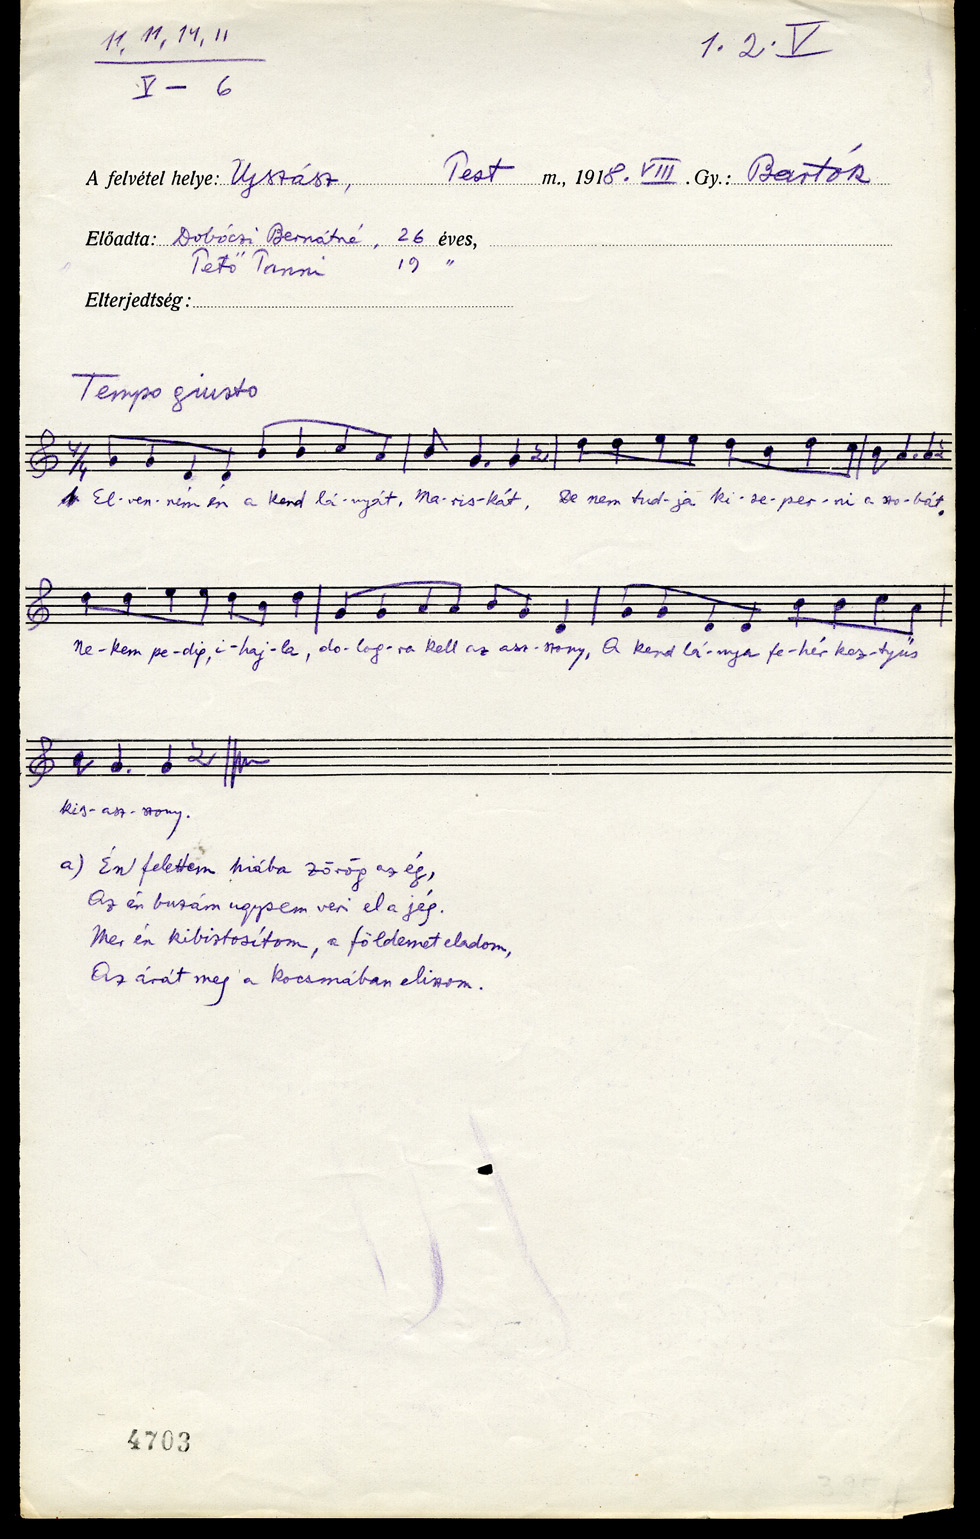 11, 11, 14, 11
V – 6
1. 2. V
A felvétel helye: Ujszász, Pest m., 1918. VIII. Gy.: Bartók
Előadta: Dobóczi Bernátné, 26 éves,
Tető Panni 19 "
Elterjedtség:
Tempo giusto
4/4
El-ven-ném én a kend lá-nyát, Ma-ris-kát, De nem tud-ja ki-se-per-ni a szo-bát.
Ne-kem pe-dig, i-haj-la, do-log-ra kell az asz-szony, A kend lá-nya fe-hér kez-tyüs
kis-asz-szony.
a) Én felettem hiába zörög az ég,
Az én buzám ugysem veri el a jég.
Mer én kibiztosítom, a földemet eladom,
Az árát meg a kocsmában eliszom.
4703